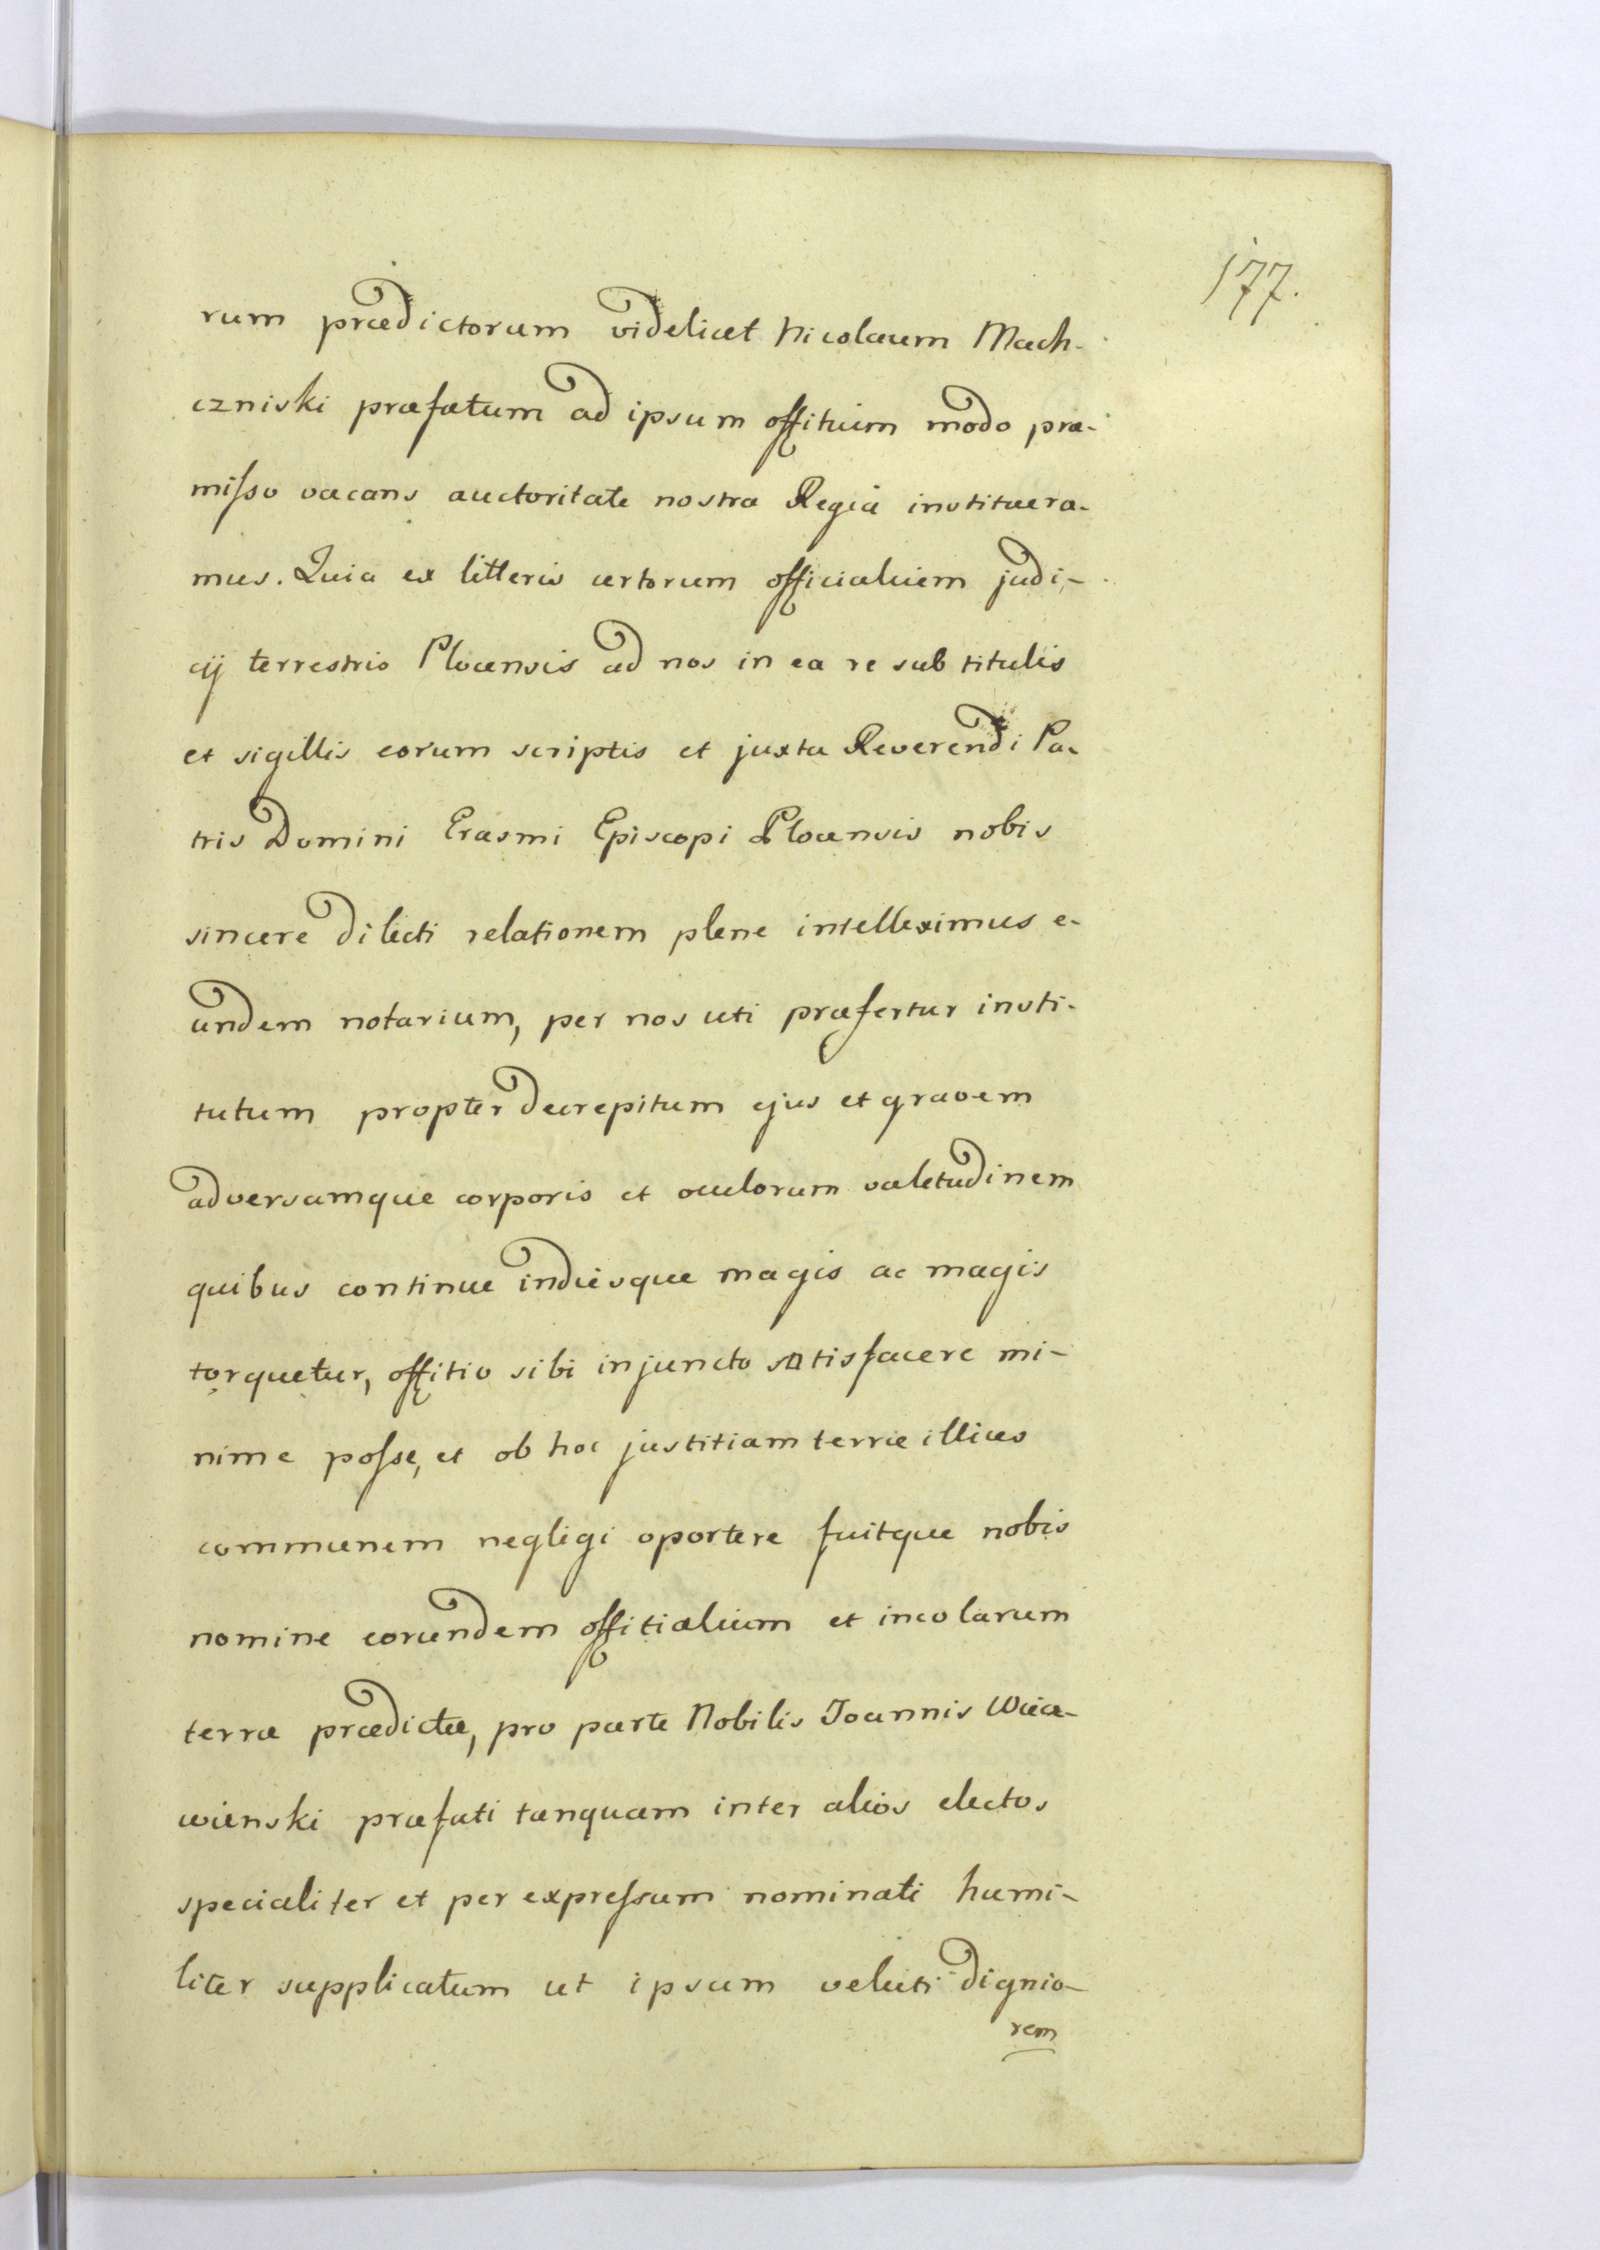 177.
rum prædictorum videlicet Nicolaum Mach-
czniski præfatum ad ipsum offitium modo præ-
misso vacans auctoritate nostra Regia institaera-
mus. Quia ex litteris certorum officialium judi-
cij terrestris Plocensis ad nos in ea re sub titulis
et sigillis eorum scriptis et juxta Reverendi Pa-
tris Domini Erasmi Episcopi Plocensis nobis
sincere dilecti relationem plene intelleximus e-
undem notarium, per nos uti præfertur insti-
tutum propter decrepitum ejus et gravem
adversamque corporis et oculorum valetudinem
quibus continue indiesque magis ac magis
torquetur, offitio sibi injuncto satisfacere mi-
nime posse, et ob hoc justitiam terræ illius
communem negligi oportere fuitque nobis
nomine eorundem offitialium et incolarum
terræ prædictæ, pro parte Nobilis Joannis Wiea-
wienski præfati tanquam inter alios electos
specialiter et per expressum nominati humi-
liter supplicatum ut ipsum veluti dignio-
rem